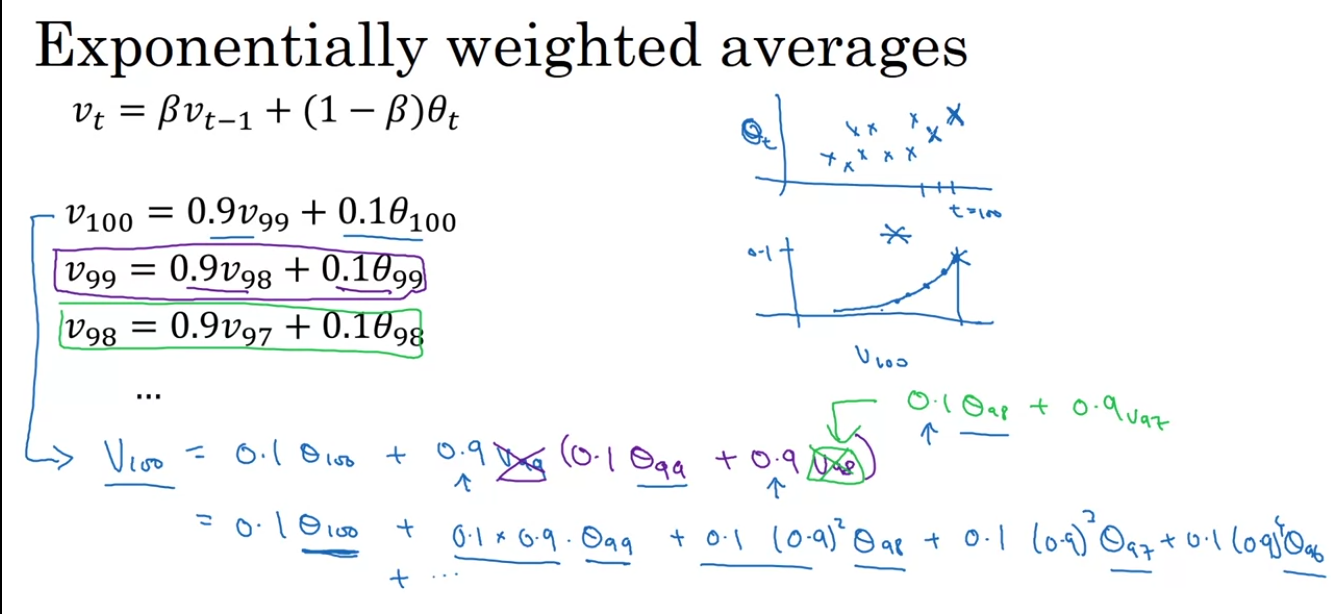 Exponentially weighted averages
v_t = βv_{t−1} + (1 − β)θ_t
θ_t
t=100
v_100 = 0.9v_99 + 0.1θ_100
v_99 = 0.9v_98 + 0.1θ_99
v_98 = 0.9v_97 + 0.1θ_98
...
0.1
V_100
0.1 θ_98 + 0.9 v_97
V_100 = 0.1 θ_100 + 0.9 v_99 (0.1 θ_99 + 0.9 v_98)
= 0.1 θ_100 + 0.1 × 0.9 · θ_99 + 0.1 (0.9)^2 θ_98 + 0.1 (0.9)^3 θ_97 + 0.1 (0.9)^4 θ_96
+ ...